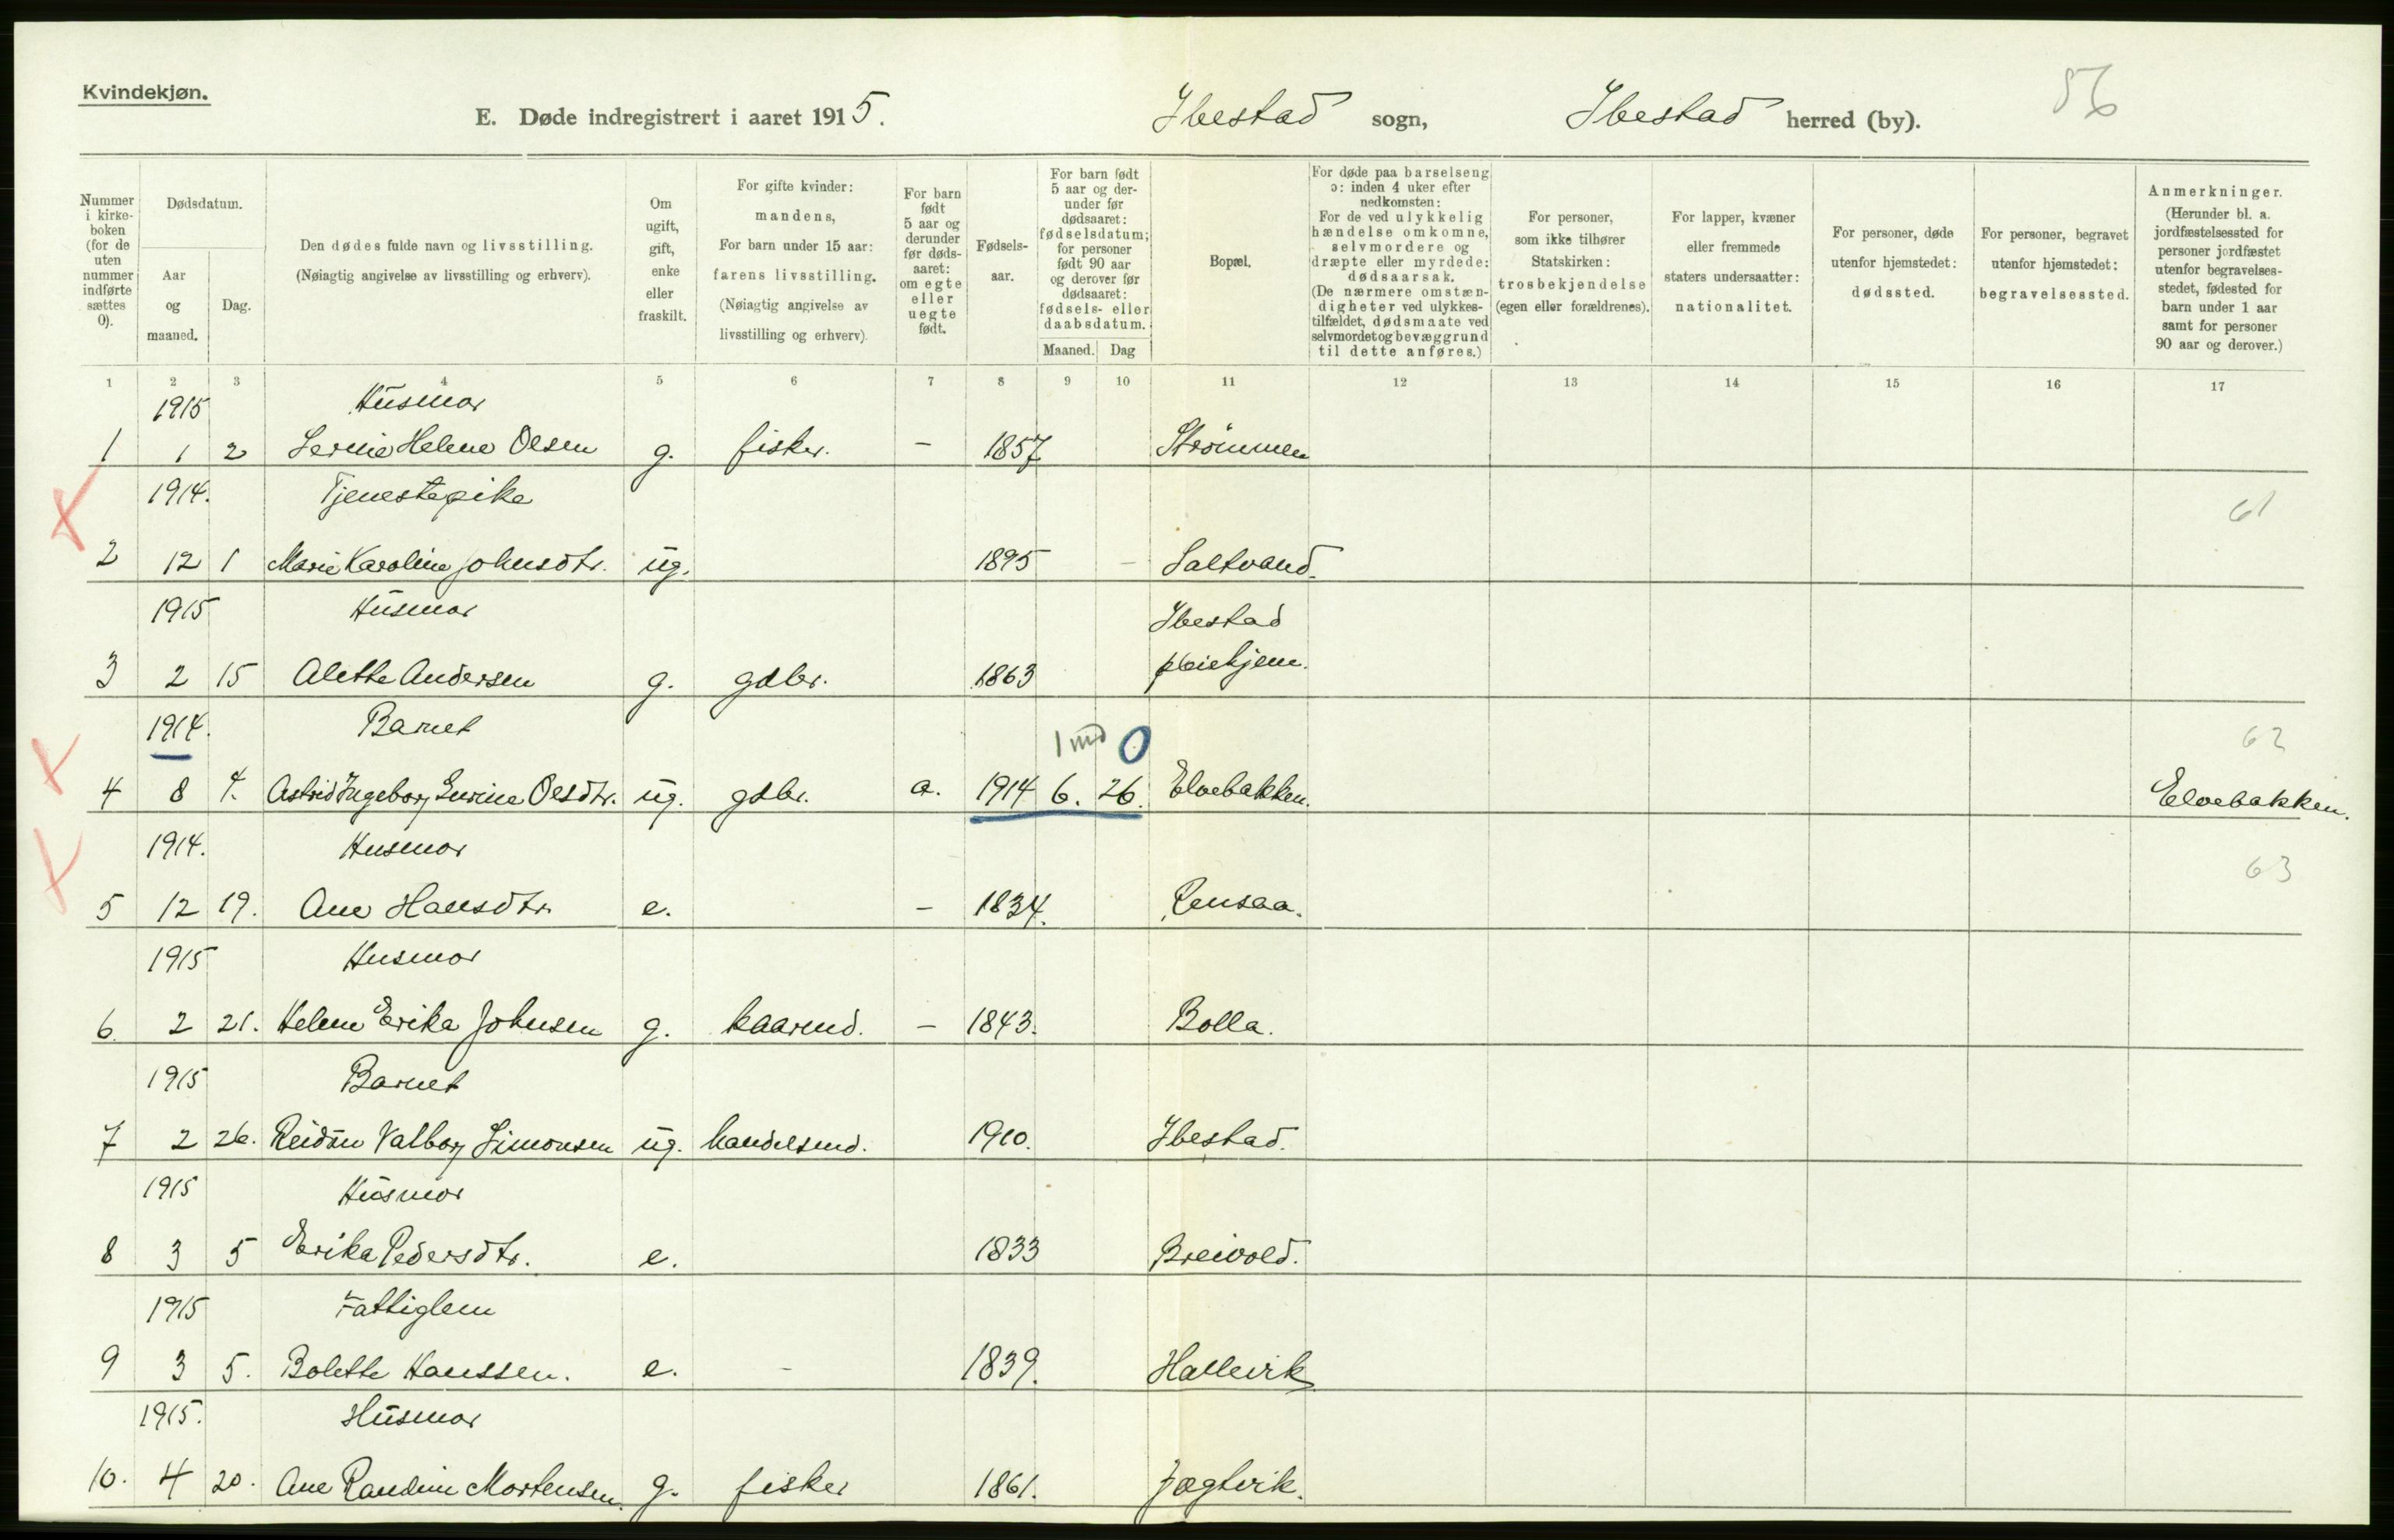 Kvindekjøn.
E. Døde indregistrert i aaret 1915. Ibestad sogn, Ibestad herred (by). 56
Nummer i kirke-boken (for de uten nummer indførte sættes 0).
Dødsdatum.
Aar og maaned.
Dag.
Den dødes fulde navn og livsstilling.
(Nøiagtig angivelse av livsstilling og erhverv).
Om ugift, gift, enke eller fraskilt.
For gifte kvinder: mandens,
For barn under 15 aar: farens livsstilling.
(Nøiagtig angivelse av livsstilling og erhverv)
For barn født 5 aar og derunder før døds-aaret: om egte eller uegte født.
Fødsels-aar.
For barn født 5 aar og der-under før dødsaaret: fødselsdatum; for personer født 90 aar og derover før dødsaaret: fødsels- eller daabsdatum.
Maaned. Dag
Bopæl.
For døde paa barselseng ɔ: inden 4 uker efter nedkomsten:
For de ved ulykkelig hændelse omkomne, selvmordere og dræpte eller myrdede: dødsaarsak.
(De nærmere omstæn-digheter ved ulykkes-tilfældet, dødsmaate ved selvmordet og bevæggrund til dette anføres.)
For personer, som ikke tilhører Statskirken: trosbekjendelse (egen eller forældrenes).
For lapper, kvæner eller fremmede staters undersaatter: nationalitet.
For personer, døde utenfor hjemstedet: dødssted.
For personer, begravet utenfor hjemstedet: begravelsessted.
Anmerkninger.
(Herunder bl. a. jordfæstelsessted for personer jordfæstet utenfor begravelses-stedet, fødested for barn under 1 aar samt for personer 90 aar og derover.)
1 2 3 4 5 6 7 8 9 10 11 12 13 14 15 16 17
1915 Husmor
1 1 2 Helene Olsen g. fisker. - 1857 Strømmen
1914. Tjenestepike 61
2 12 1 Marie Karoline Johnsdtr. ug. 1895 - Saltvand.
1915 Husmor Ibestad
3 2 15 Alette Andersen g. gdbr. 1863 pleiehjem.
1914. Barnet 1 md 0 62
4 8 4. Astrid Ingeborg Olsdtr. ug. gdbr. a. 1914 6. 26. Elvebakken. Elvebakken.
1914. Husmor 63
5 12 19. Ane Hansdtr. e. - 1834. Rensaa.
1915 Husmor
6. 2 21. Helene Erika Johnsen g. kaarmd. - 1843. Bolla.
1915 Barnet
7 2 26. Reidun Valborg Simonsen ug. handelsmd. 1910. Ibestad.
1915 Husmor
8 3 5 Erika Pedersdtr. e. 1833 Breivold.
1915 Fattiglem
9 3 5. Bolette Hanssen. e. - 1839. Hallevik
1915. Husmor
10. 4 20. Ane Mortensen. g. fisker 1861. Jægtvik.